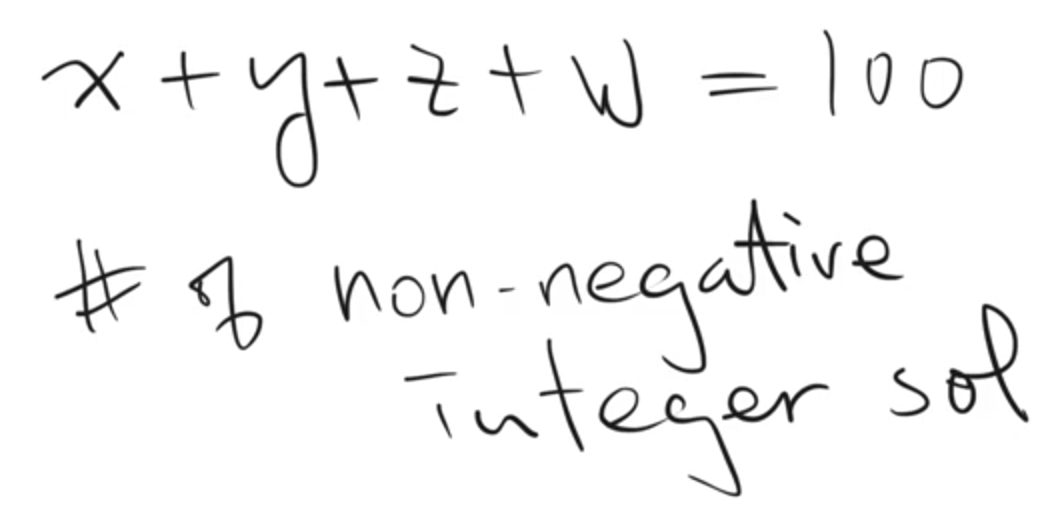 x + y + z + w = 100
# of non-negative
integer sol